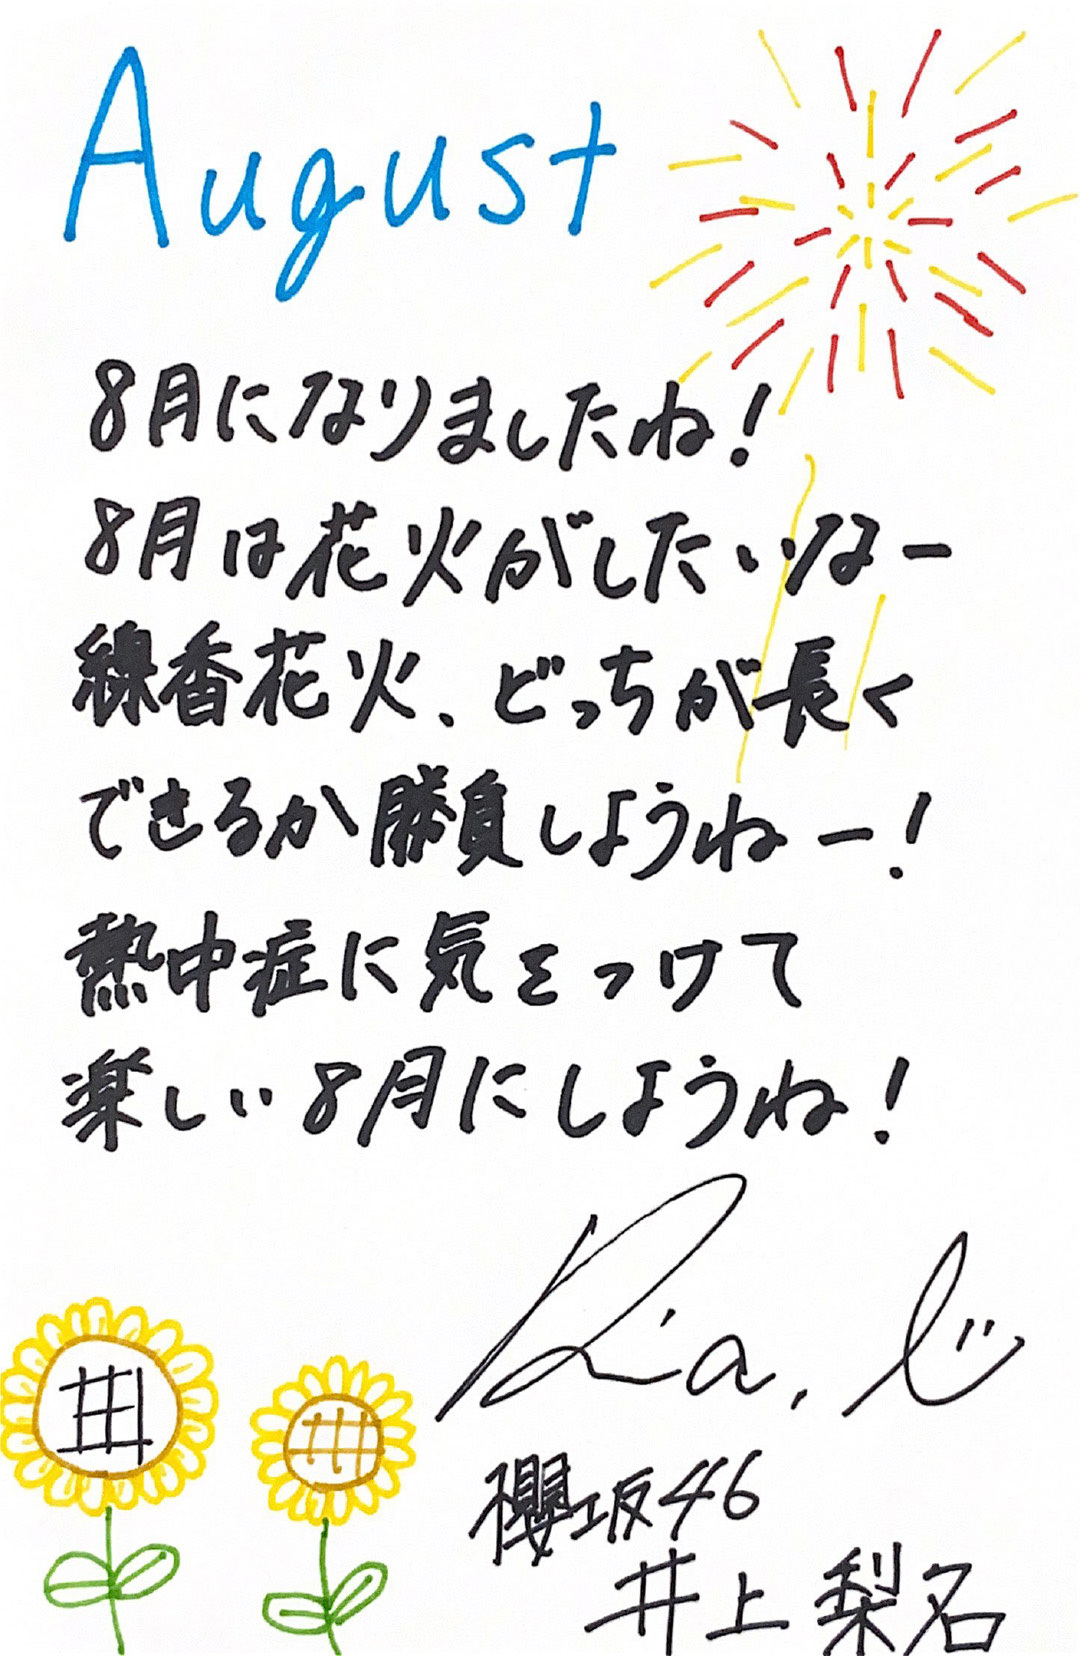 August
8月になりましたね!
8月は花火がしたいなー
線香花火、どっちが長く
できるか勝負しようねー!
熱中症に気をつけて
楽しい8月にしようね!
Ria.
櫻坂46
井上梨名